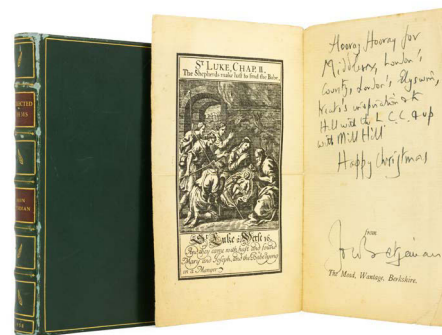 St LUKE, CHAP. II.
The Shepherds make hast to find the Babe.
St Luke 2 Verse 16
And they came with hast and found
Mary and Joseph, and the Babe lying
in a Manger
Hooray Hooray for
Middlesex, London's
County, London's Elysium,
Keats's inspiration &
Hill with the L.C.C. & up
with Mill Hill
Happy Christmas
from
John Betjeman
The Mead, Wantage, Berkshire.